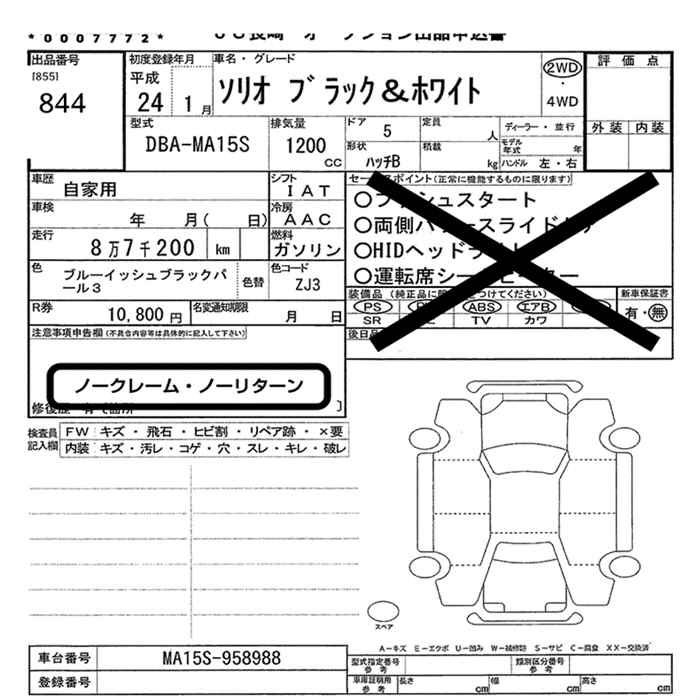 *0007772*
出品番号
[855]
844
初度登録年月
平成
24 1月
車名・グレード
ソリオ ブラック&ホワイト
2WD
・
4WD
評価点
外装 内装
型式
DBA-MA15S
排気量
1200
cc
ドア
5
形状
ハッチB
定員
人
積載
kg
ディーラー・並行
モデル年式 年
ハンドル 左・右
車歴
自家用
シフト
IAT
車検
年 月( 日)
冷房
AAC
走行
8万7千200 km
燃料
ガソリン
色
ブルーイッシュブラックパール3
色替
色コード
ZJ3
R券
10,800円
名変通知期限
月 日
セールスポイント(正常に機能するものに限ります)
○両側パワースライドドア
○HIDヘッドライト
○運転席シートヒーター
装備品
PS ABS エアB
SR TV カワ
新車保証書
有・無
後日品
注意事項申告欄(不具合内容等は具体的に記入して下さい)
ノークレーム・ノーリターン
修復歴
検査員記入欄
FW キズ・飛石・ヒビ割・リペア跡・×要
内装 キズ・汚レ・コゲ・穴・スレ・キレ・破レ
スペア
A-キズ E-エクボ U-凹み W-補修跡 S-サビ C-腐食 XX-交換済
車台番号
MA15S-958988
登録番号
型式指定番号
参考
類別区分番号
参考
車庫証明用
参考
長さ cm
幅 cm
高さ cm